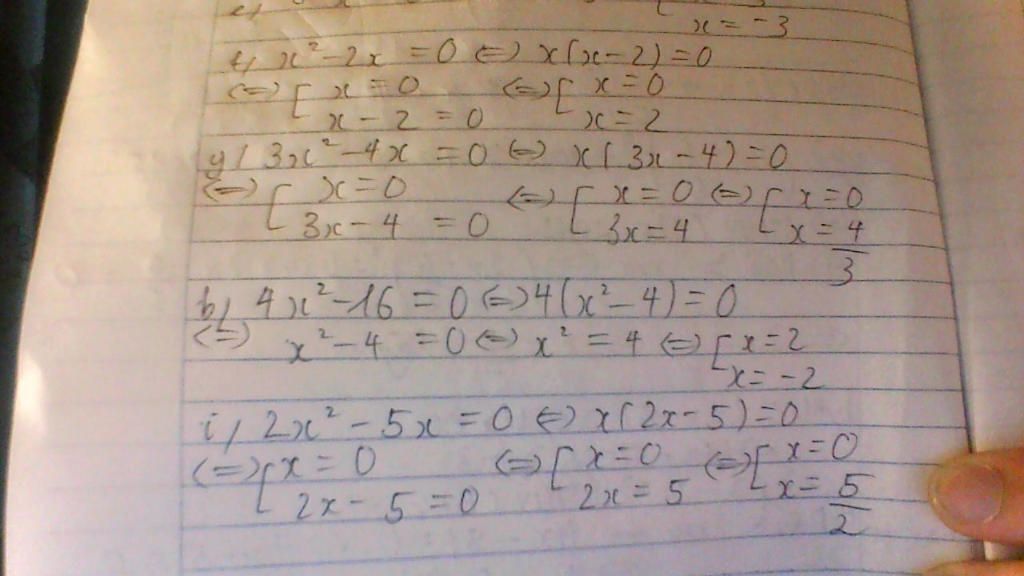 x = -3
x² - 2x = 0 <=> x(x - 2) = 0
<=> [ x = 0 <=> [ x = 0
x - 2 = 0 x = 2
g, 3x² - 4x = 0 <=> x(3x - 4) = 0
<=> [ x = 0 <=> [ x = 0 <=> [ x = 0
3x - 4 = 0 3x = 4 x = 4/3
h, 4x² - 16 = 0 <=> 4(x² - 4) = 0
<=> x² - 4 = 0 <=> x² = 4 <=> [ x = 2
x = -2
i, 2x² - 5x = 0 <=> x(2x - 5) = 0
<=> [ x = 0 <=> [ x = 0 <=> [ x = 0
2x - 5 = 0 2x = 5 x = 5/2